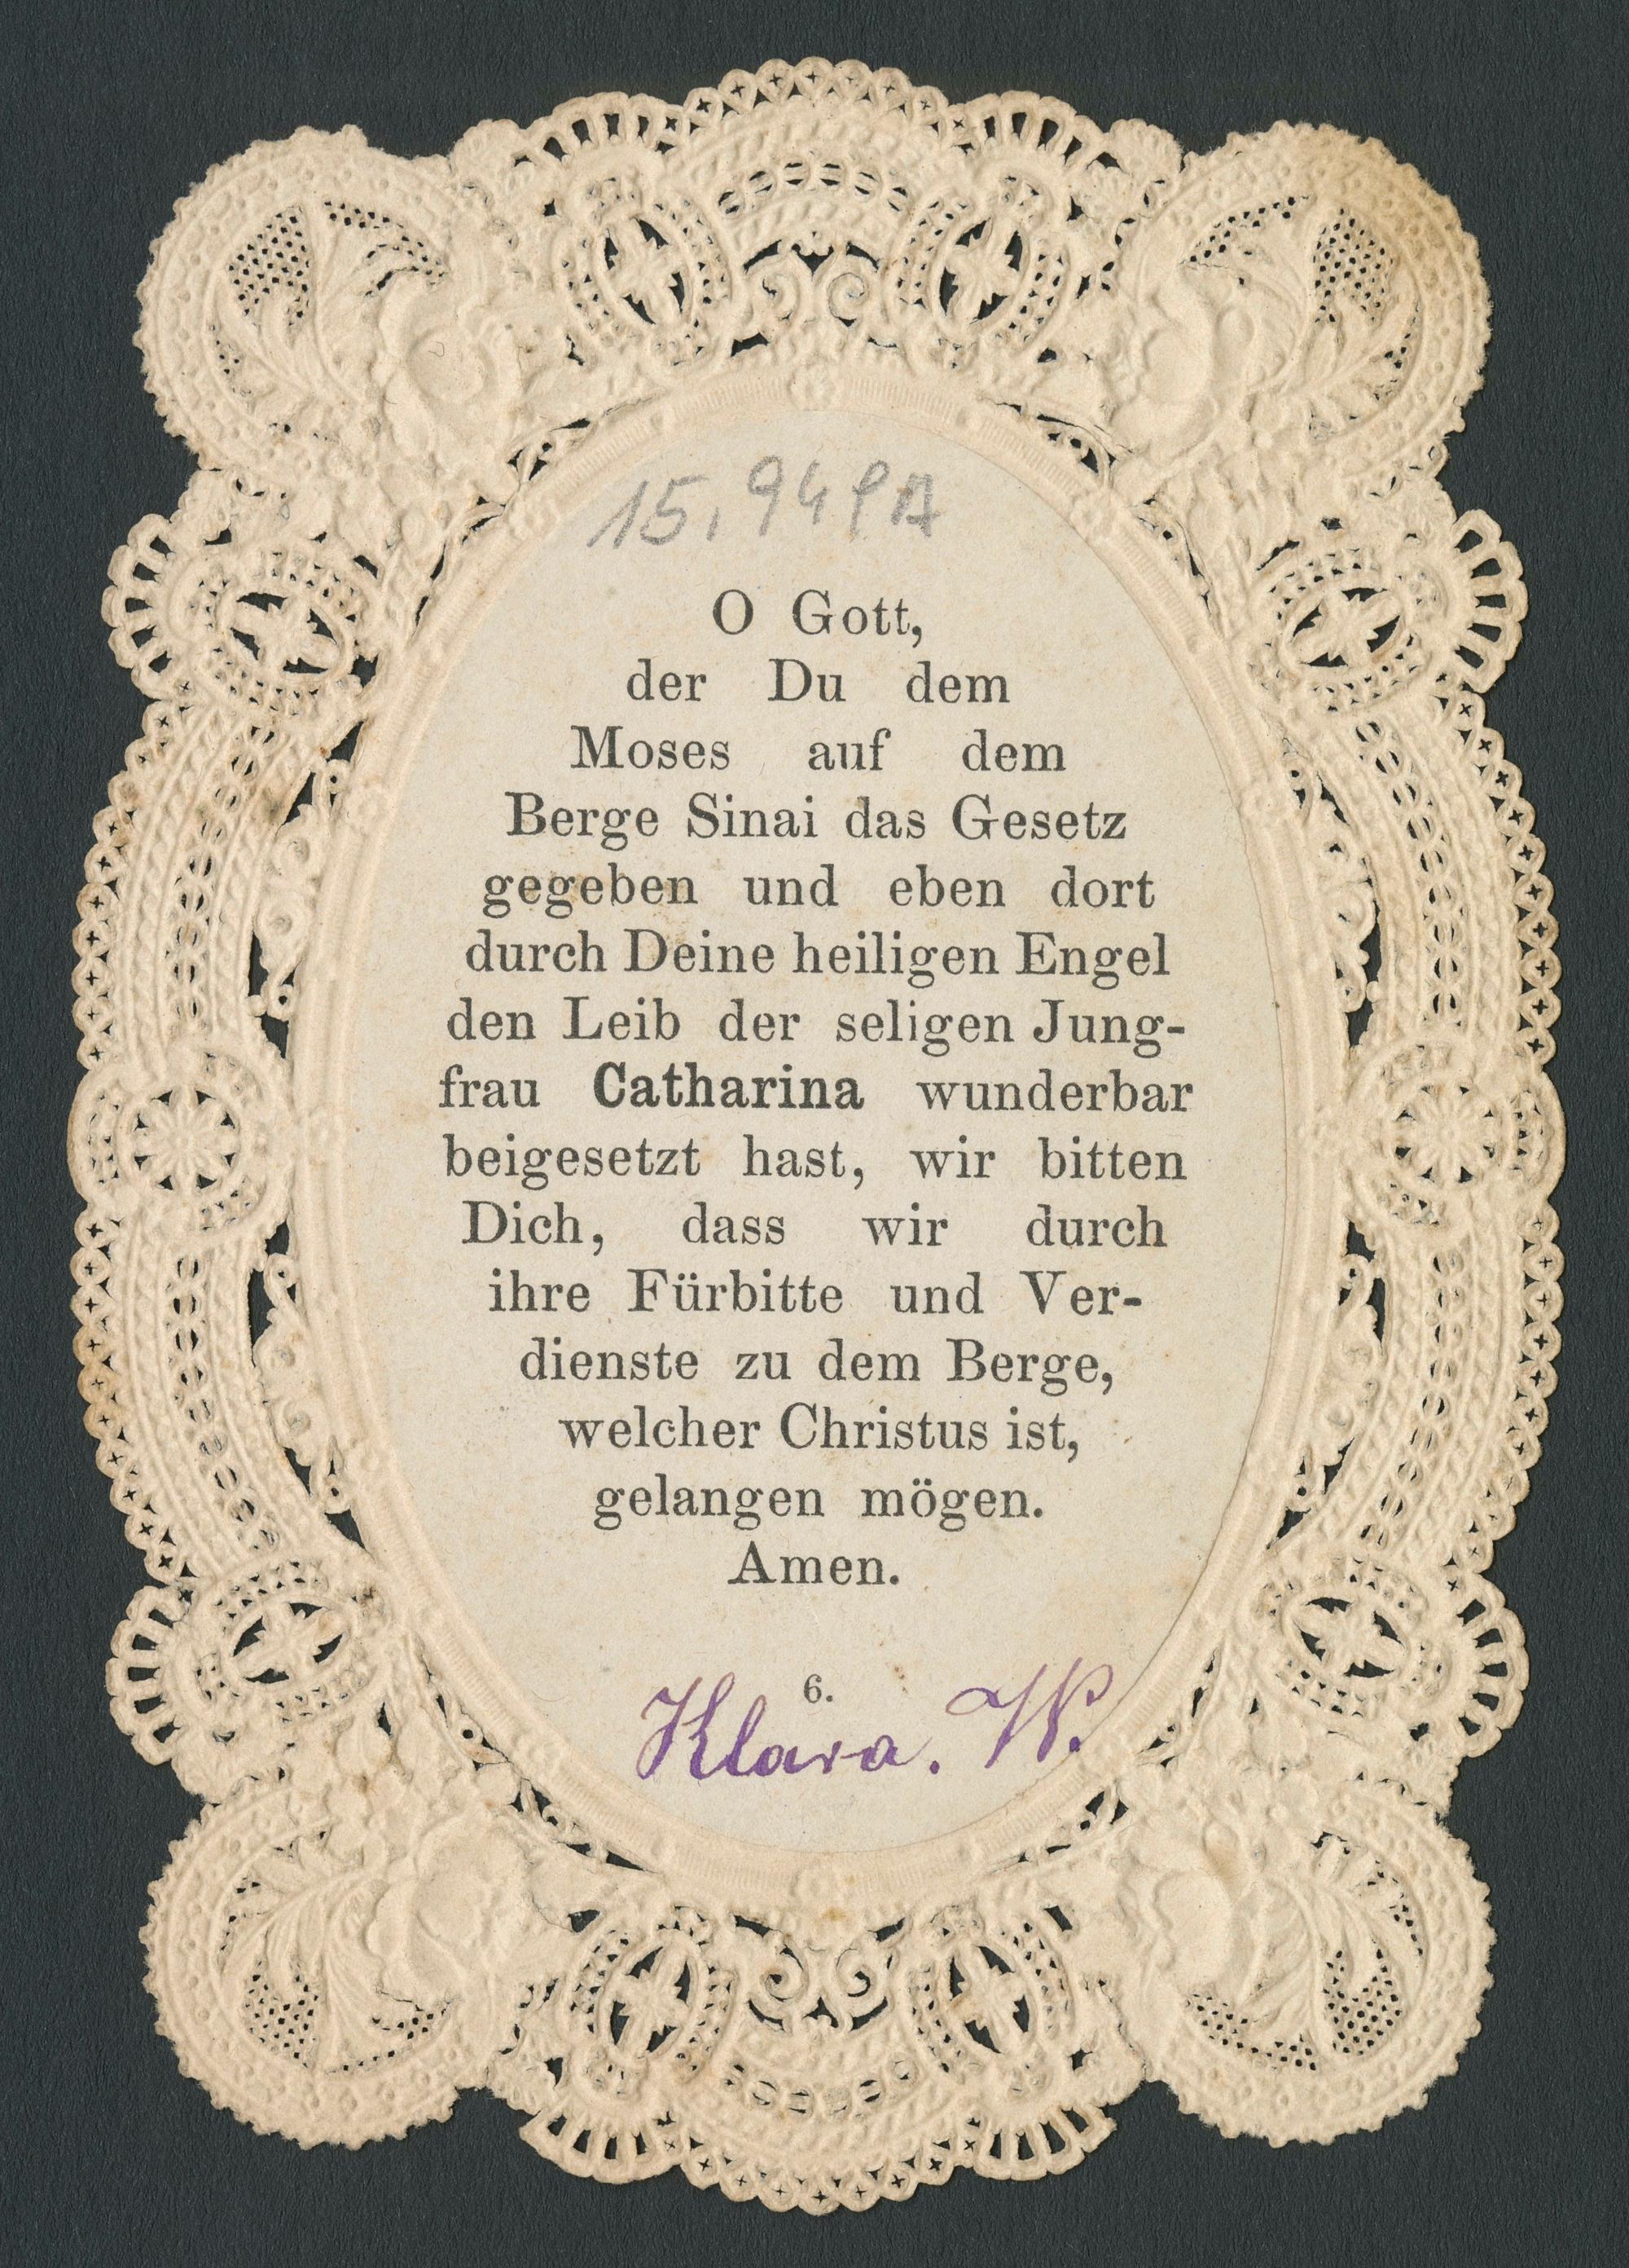 15,949A
O Gott,
der Du dem
Moses auf dem
Berge Sinai das Gesetz
gegeben und eben dort
durch Deine heiligen Engel
den Leib der seligen Jung-
frau Catharina wunderbar
beigesetzt hast, wir bitten
Dich, dass wir durch
ihre Fürbitte und Ver-
dienste zu dem Berge,
welcher Christus ist,
gelangen mögen.
Amen.
6.
Klara. W.